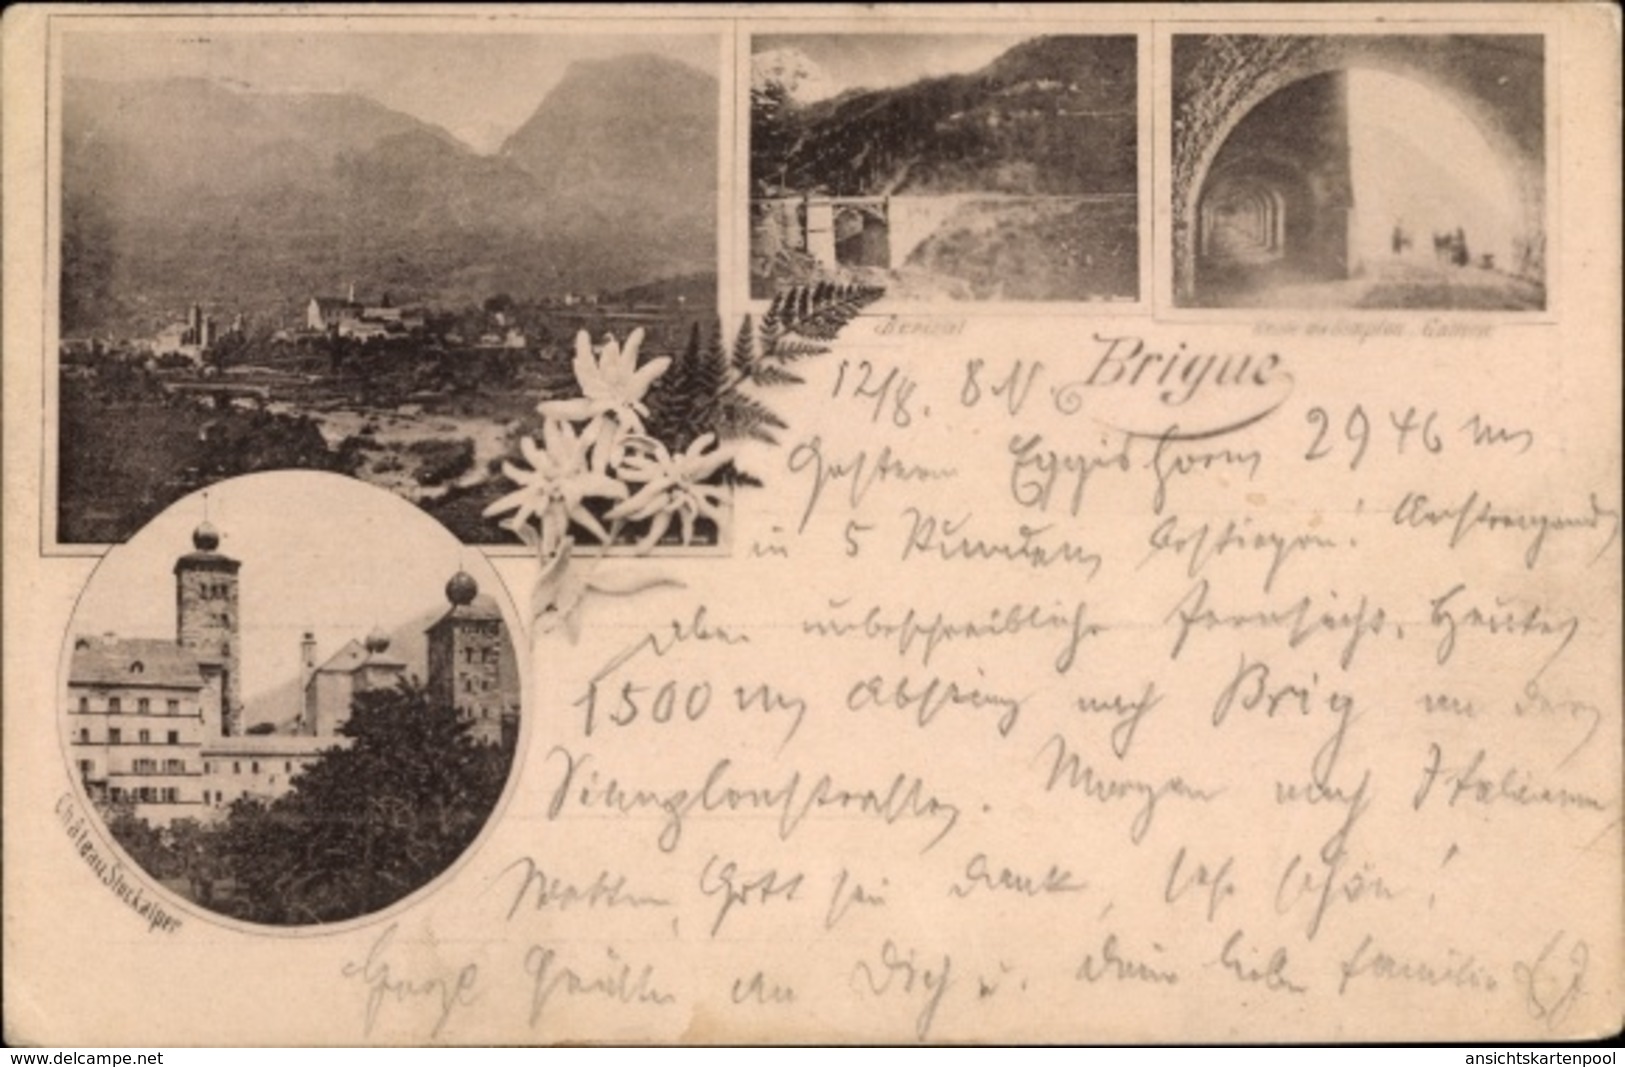 Berisal
Galerie
Brigue
12/8. 8 N
Gestern Eggishorn 2946 m
in 5 Stunden bestiegen! Anstrengend
aber unbeschreibliche Fernsicht. Heute
1500 m Abstieg nach Brig an der
Simplonstrasse. Morgen nach Italien
Wetter, Gott sei Dank, sehr schön!
Grüsse an Dich u. Deine liebe Familie
Château Stockalper
www.delcampe.net
ansichtskartenpool